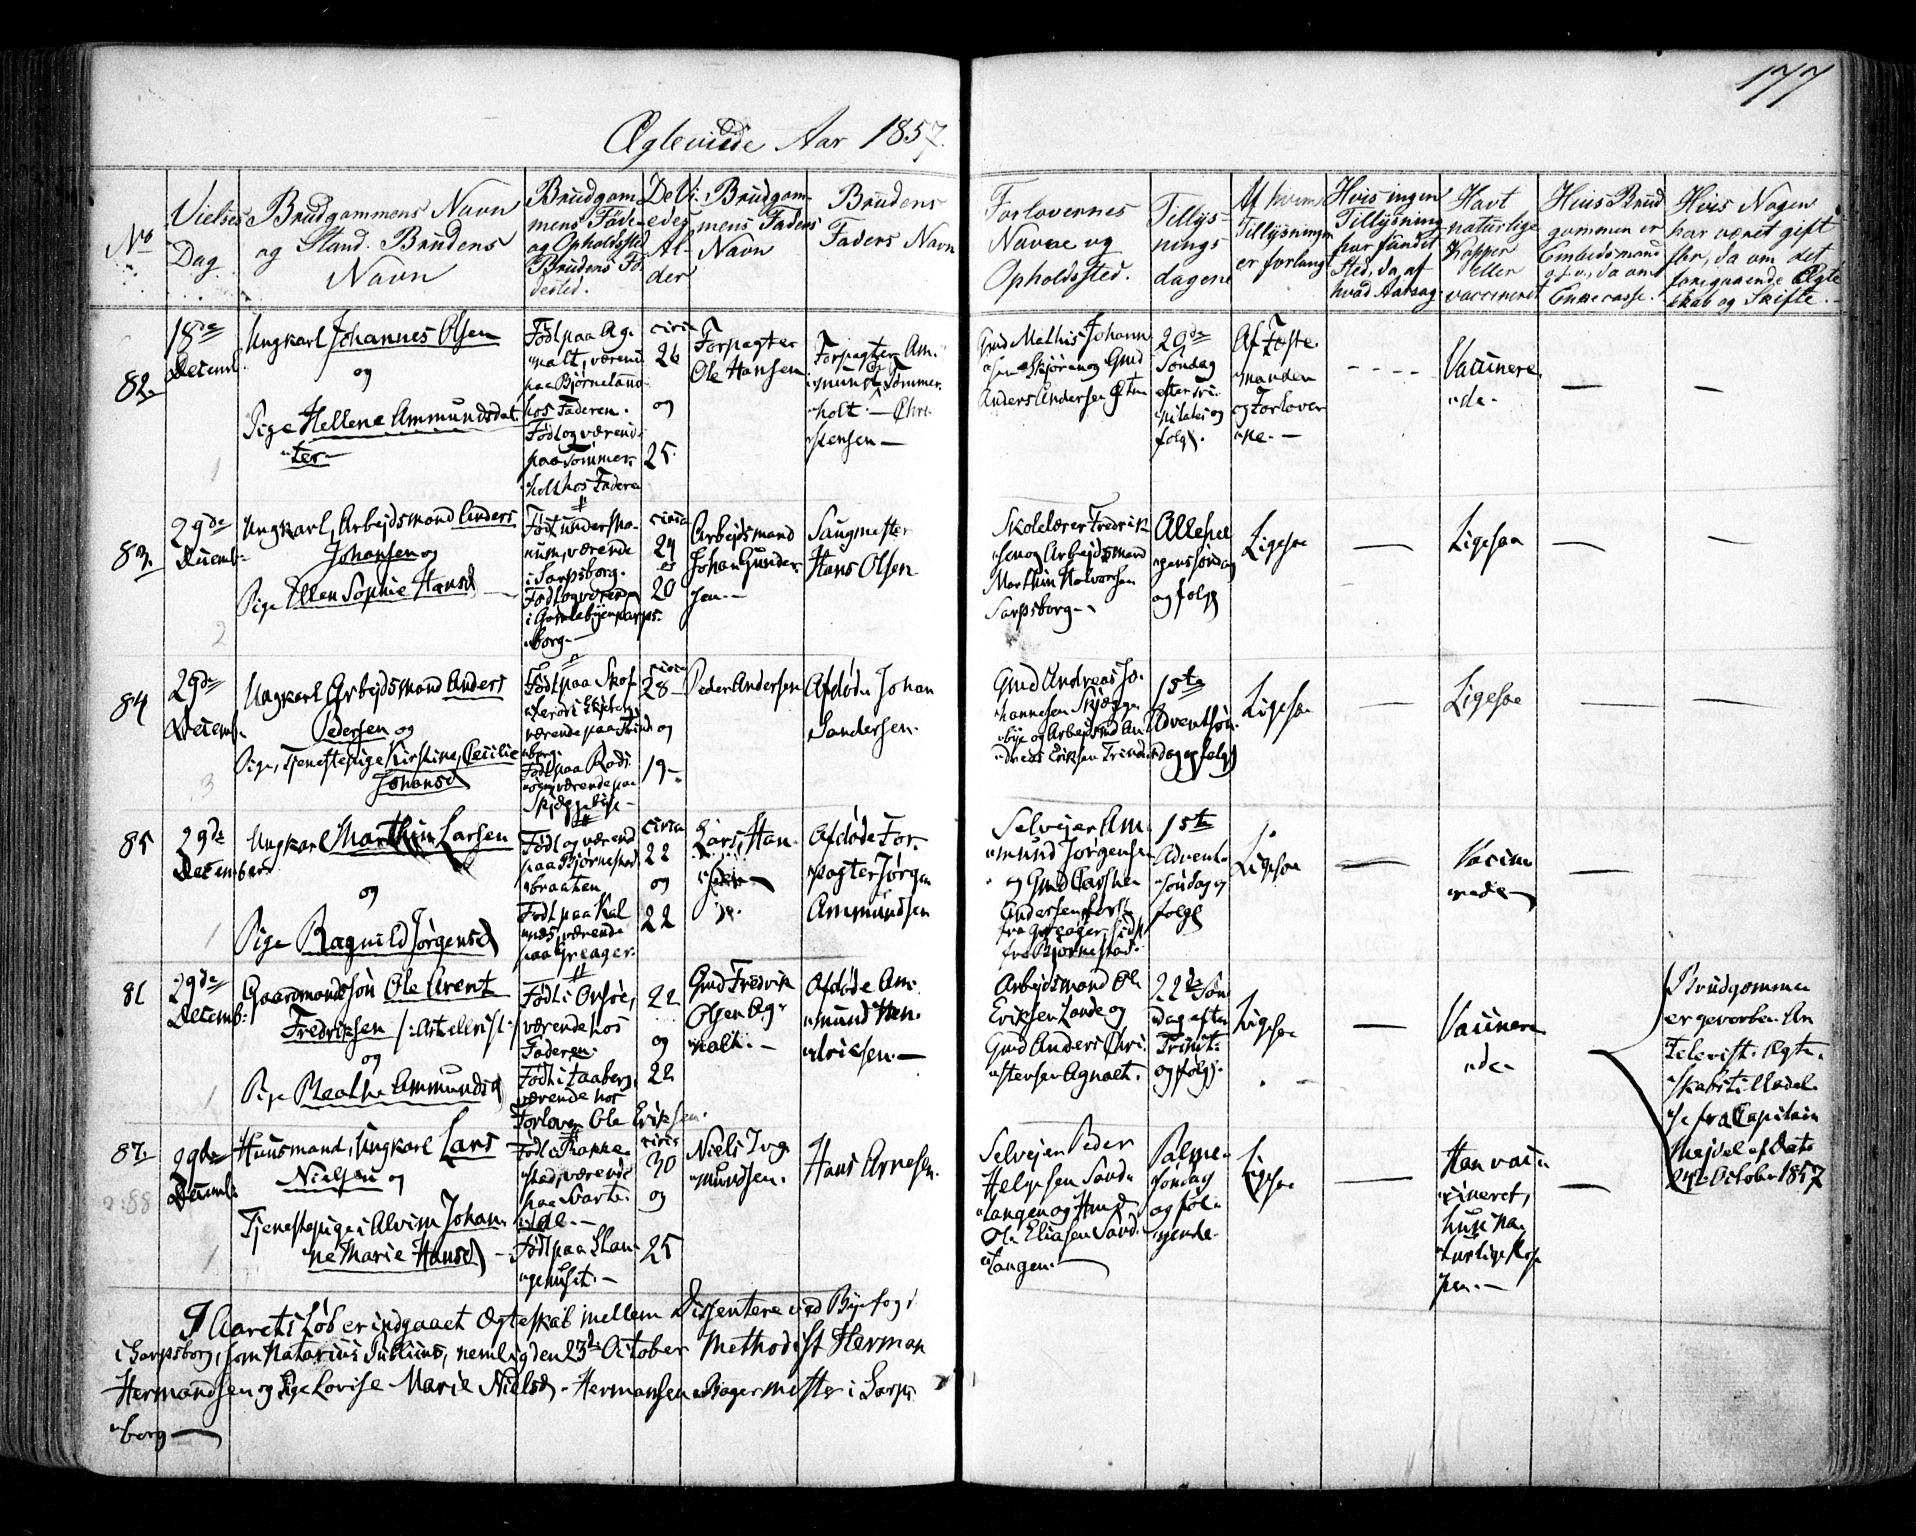 177
Ægteviede Aar 1857.
No
Vielses
Dag
Brudgommens Navn
og Stand. Brudens
Navn
Brudgom-
mens Føde-
og Opholdssted
Brudens Fø-
dested.
De Vi-
edes
Al-
der
Brudgom-
mens Faders
Navn
Brudens
Faders Navn
Forlovernes
Navne og
Opholdssted.
Tillys-
nings
dagene
Af hvem
Tillysningen
er forlangt
Hvis ingen
Tillysning
har fundet
Sted, da af
hvad Aarsag
Havt
naturlige
Kopper
eller
vaccineret
Hvis Brud
gommen er
Embedsmand
o.s.v., da om
Enkecasse.
Hvis Nogen
har været gift
før, da om det
foregaaende Ægte
skab og Skifte.
82.
18de
Decemb.
Ungkarl Johannes Olsen
og
Pige Hellene Ammundsdat
ter
Født paa Ag-
nalt, værend
paa Bjørneland
hos Faderen.
Født og værend
paa Tømmer-
holt hos Faderen
circa
26
og
25.
Forpagter
Ole Hansen
Forpagter Am-
mund Tømmer-
holt - Chri-
stensen
Gmd Mathis Johann
sen Skjøren og Gmd
Anders Andersen
20de
Søndag
efter Tri-
nitatis og
følg.
Af Faste
manden
og Forlover
ne.
- - - -
Vaccinere
de
—
—
1
83.
29de
Decemb.
Ungkarl, Arbejdsmand Anders
Johansen og
Pige Ellen Sophie Hansd
Født under
værende
i Sarpsborg.
Født og værend
i Gamlebyen Sarps-
borg.
circa
24
og
20
Arbejdsmand
Johan Gunder-
sen
Saugmester
Hans Olsen
Skolelærer Fredrik
sen og Arbejdsmand
Marthin Halvorsen
Sarpsborg
Allehel
gens søndag
og følg
Ligesaa
—
Ligesaa
—
—
2
84
29de
Decemb.
Ungkarl Arbejdsmand Anders
Pedersen og
Pige, Tjenestepige Kirstine, Cecilie
Johansd
Født paa Skof-
værende paa Trind
borg.
Født paa Rods
værende paa
Skjæggebye
circa
28
og
19
Peder Andersen
Afdøde Johan
Sandersen.
Gmd Andreas Jo-
hannesen Skjægge
bye og Arbejdsmd An-
dreas Eriksen Trind
1ste
Adventsøn
dag og følg
Ligesaa
—
Ligesaa
—
—
3
85
29de
December
Ungkarl Marthin Larsen
og
Pige Ragnild Jørgensd
Født og værend
paa Bjørnestad
braaten
Født paa Kal
næs, værende
paa Greager.
circa
22
og
22
Lars Han-
sen
Afdøde For-
pagter Jørgen
Ammundsen
Selvejer Am-
mund Jørgensen
og Gmd
Andersen første
fra Greager, sidste
fra Bjørnestad.
1ste
Advent-
søndag og
følg
Ligesaa
—
Vaccine
rede
—
—
1
86
29de
Decemb.
Gaardmandssøn Ole Arent
Fredriksen /: Artellrist :/
og
Pige Maathe Ammundsd
Født i Onsøe,
værende hos
Faderen.
Født i Laaberg,
værende hos
Forlover Ole Eriksen.
22
og
22
Gmd Fredrik
Olsen Ag-
nalt.
Afdøde Am-
mund Hen-
driksen.
Arbejdsmand Ole
Eriksen Lande og
Gmd Anders Chri-
stensen Agnalt.
22de Søn
dag efter
Trinit.
og følg.
Ligesaa
—
Vaccinere
de
Brudgommen
er gevorben Ar
tellerist. Ægte-
skabstilladel-
se fra Capitain
Mejdel af Dato
24de October 1857
1
87.
29de
Decemb.
Huusmand, Ungkarl Lars
Nielsen og
Tjenestepige i Alvim Johan
ne Marie Hansd
Født i Rakke-
stad, værende
paa Svarte-
dal.
Født paa Stan-
gehuset.
circa
30
og
25
Niels Ing-
mundsen.
Hans Arnesen.
Selvejer Peder
Helgesen Sand-
tangen og Hmd
Ole Eliasen Sand-
tangen.
Palme-
søndag
og føl-
gende
Ligesaa
—
Han vac-
cineret,
hun na-
turlige Kop
per.
—
2:88
1
I Aarets Løb er indgaaet Ægteskab mellem Dissentere ved Byefogd
i Sarpsborg, som Notarius Publicus, nemlig den 23de October Methodist Herman
Hermandsen og Pige Lovise Marie Nielsd - Hermansen er Bagermester i Sarps-
borg